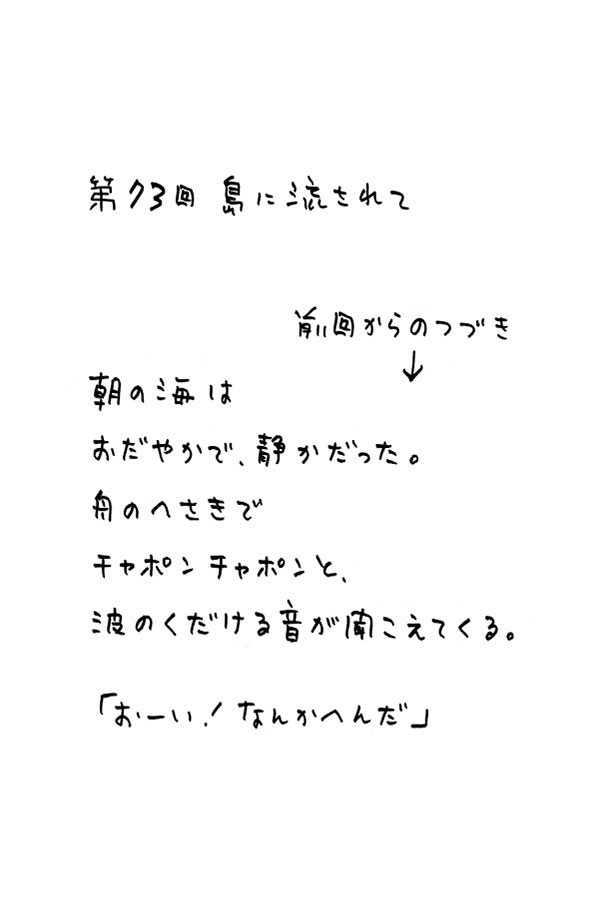 第73回 島に流されて
前回からのつづき
↓
朝の海は
おだやかで、静かだった。
舟のへさきで
チャポンチャポンと、
波のくだける音が聞こえてくる。
「おーい！なんかへんだ」